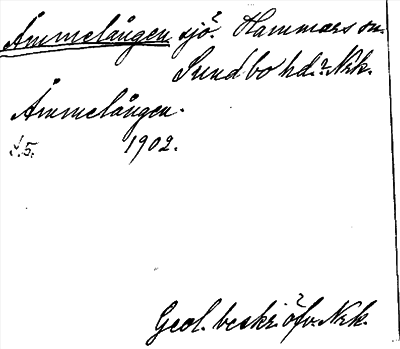 Åmmelången sjö? Hammars sn.
Sundbo hd.? Nrk.
Åmmelången.
s. 5. 1902.
Geol. beskr. öfv. Nrk.